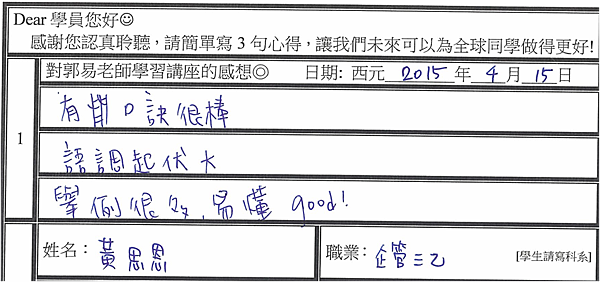 Dear 學員您好☺
感謝您認真聆聽，請簡單寫 3 句心得，讓我們未來可以為全球同學做得更好!
對郭易老師學習講座的感想◎ 日期: 西元 2015 年 4 月 15 日
1
有背口訣很棒
語調起伏大
舉例很多，易懂 good!
姓名： 黃思恩 職業： 企管三乙 [學生請寫科系]